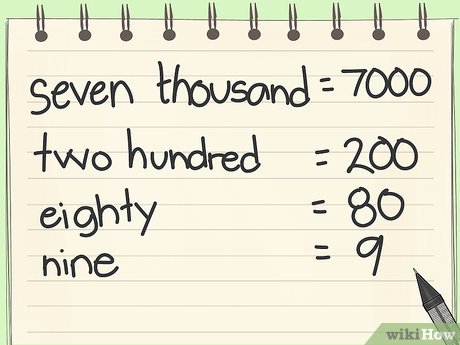 seven thousand = 7000
two hundred = 200
eighty = 80
nine = 9
wikiHow